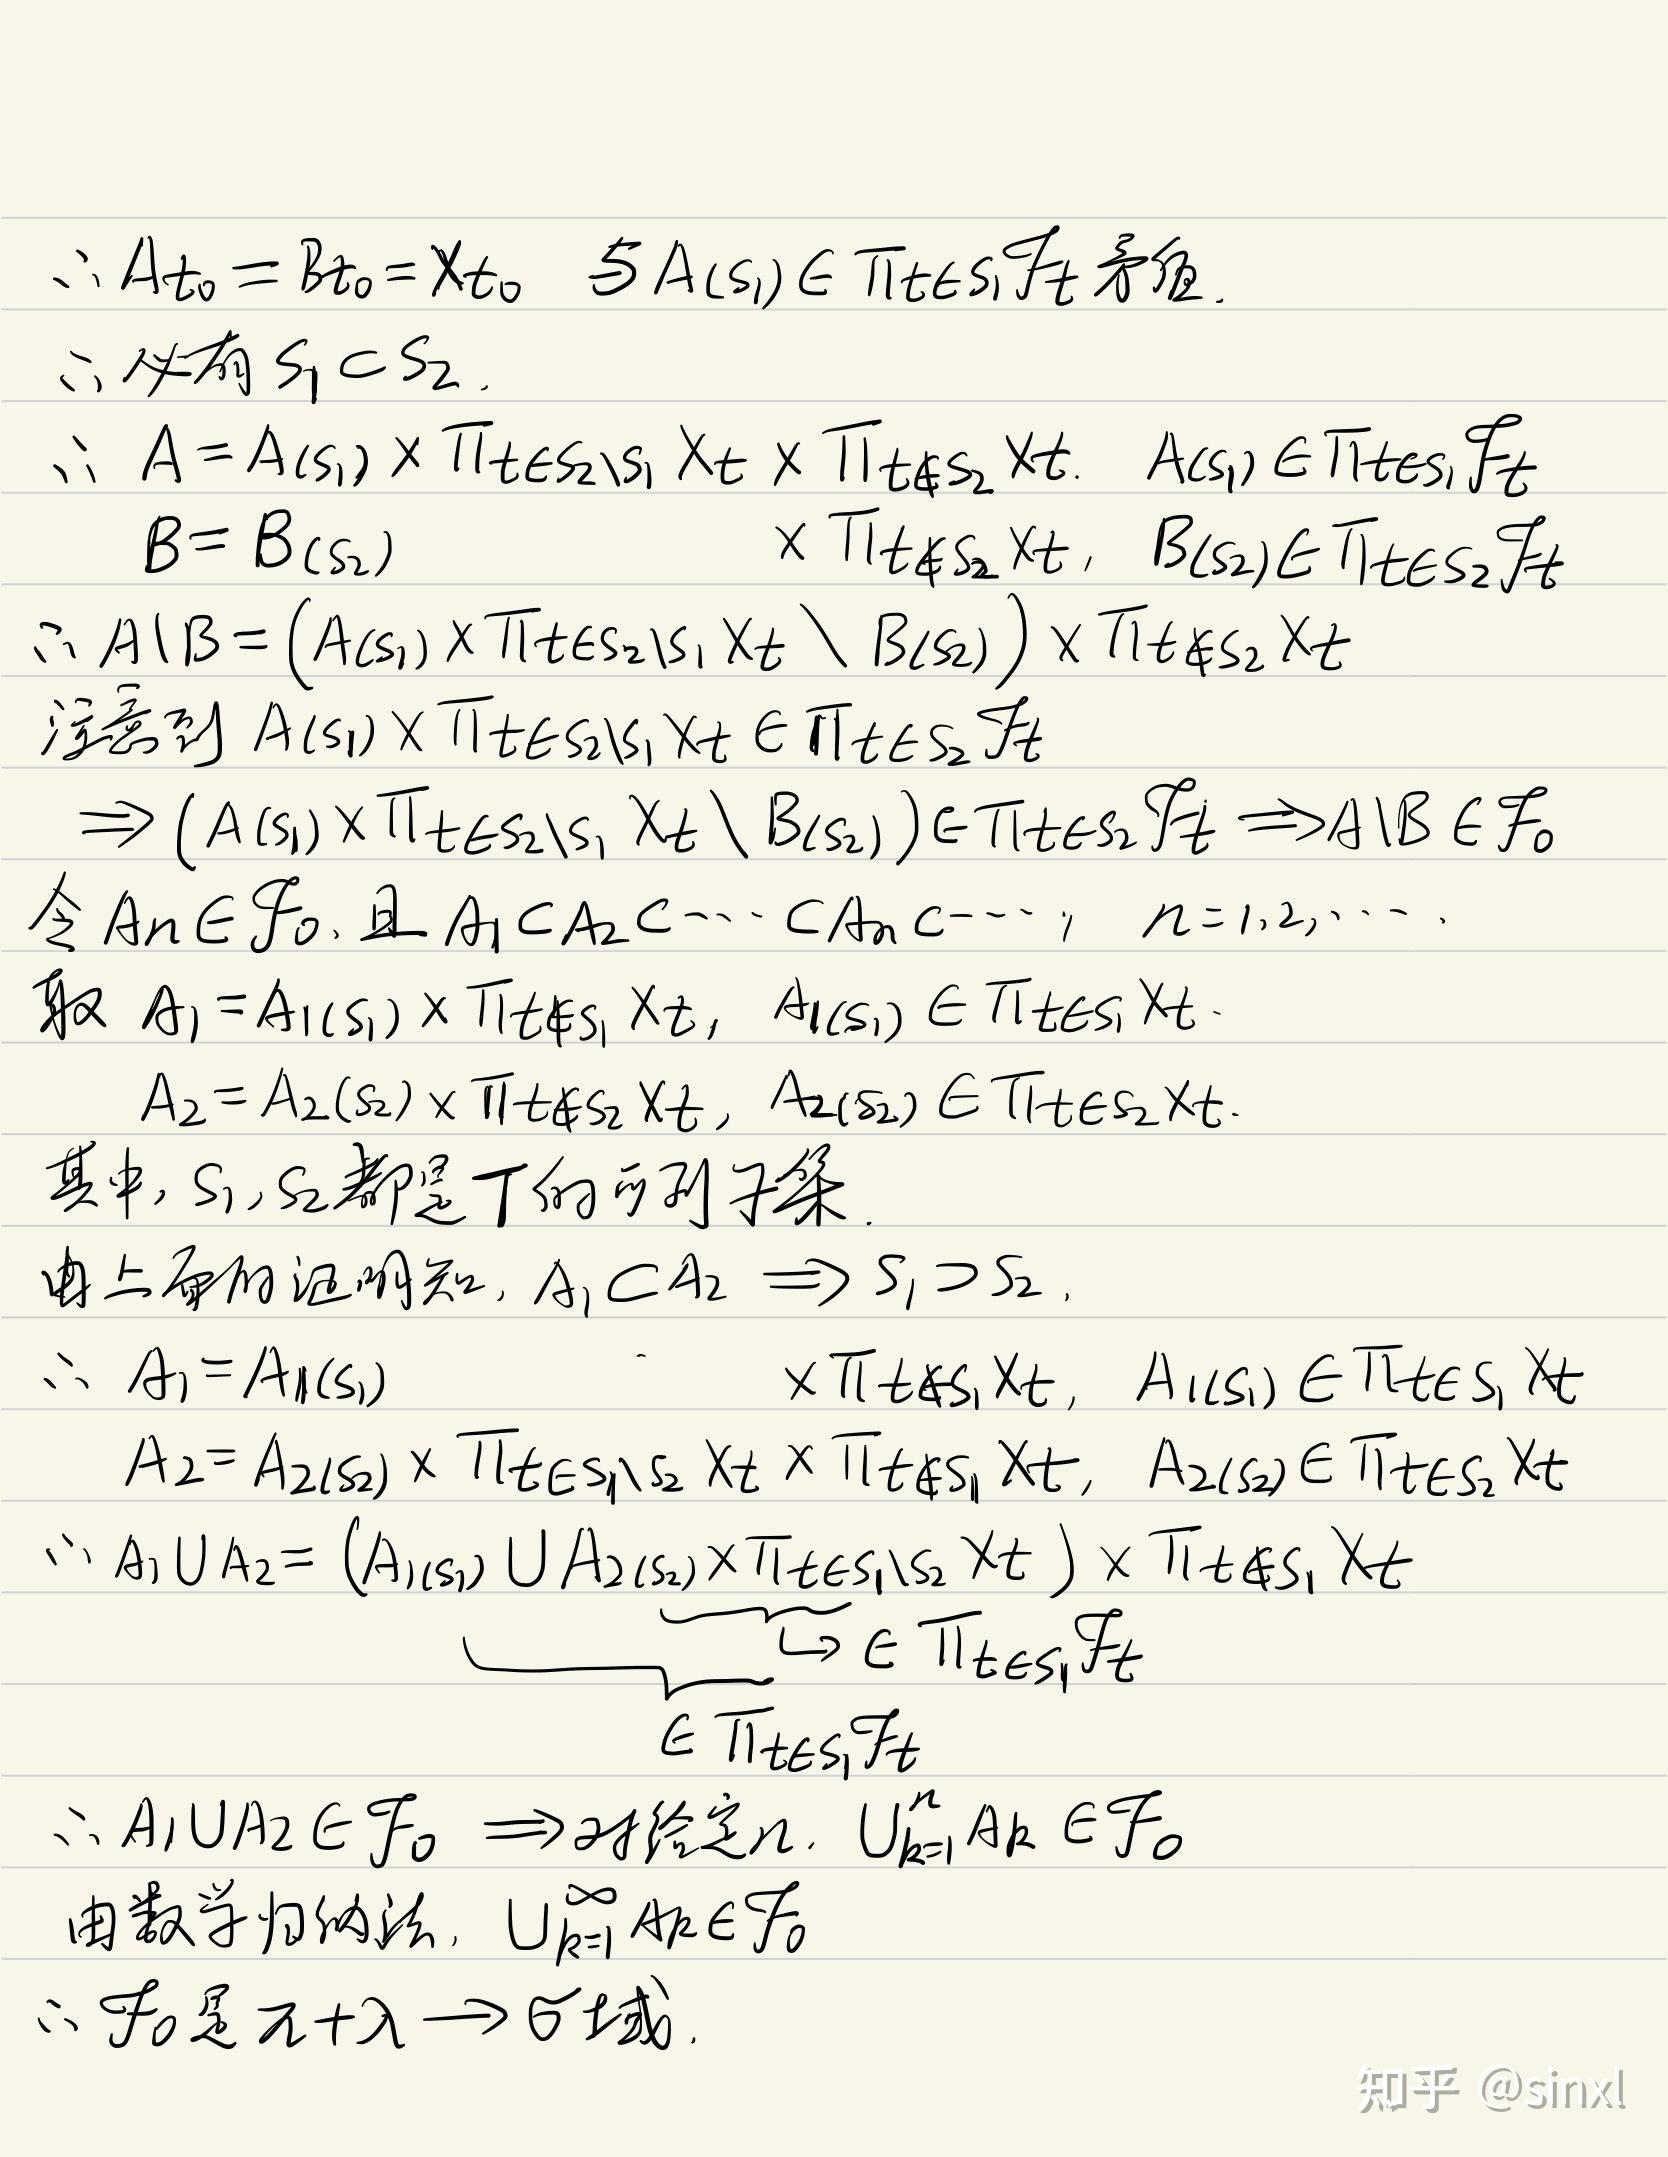 ∴ At₀ = Bt₀ = Xt₀ 与 A(S₁) ∈ Πt∈S₁ ℱt 矛盾.
∴ 必有 S₁ ⊂ S₂.
∴ A = A(S₁) × Πt∈S₂\S₁ Xt × Πt∉S₂ Xt. A(S₁) ∈ Πt∈S₁ ℱt
B = B(S₂) × Πt∉S₂ Xt, B(S₂) ∈ Πt∈S₂ ℱt
∴ A\B = (A(S₁) × Πt∈S₂\S₁ Xt \ B(S₂)) × Πt∉S₂ Xt
注意到 A(S₁) × Πt∈S₂\S₁ Xt ∈ Πt∈S₂ ℱt
⇒ (A(S₁) × Πt∈S₂\S₁ Xt \ B(S₂)) ∈ Πt∈S₂ ℱt ⇒ A\B ∈ ℱ₀
令 An ∈ ℱ₀, 且 A₁ ⊂ A₂ ⊂ ⋯ ⊂ An ⊂ ⋯, n = 1, 2, ⋯.
取 A₁ = A₁(S₁) × Πt∉S₁ Xt, A₁(S₁) ∈ Πt∈S₁ Xt.
A₂ = A₂(S₂) × Πt∉S₂ Xt, A₂(S₂) ∈ Πt∈S₂ Xt.
其中, S₁, S₂ 都是 T 的可列子集.
由上面的证明知, A₁ ⊂ A₂ ⇒ S₁ ⊃ S₂.
∴ A₁ = A₁(S₁) × Πt∉S₁ Xt, A₁(S₁) ∈ Πt∈S₁ Xt
A₂ = A₂(S₂) × Πt∈S₁\S₂ Xt × Πt∉S₁ Xt, A₂(S₂) ∈ Πt∈S₂ Xt
∴ A₁ ∪ A₂ = (A₁(S₁) ∪ A₂(S₂) × Πt∈S₁\S₂ Xt) × Πt∉S₁ Xt
↳ ∈ Πt∈S₁ ℱt
∈ Πt∈S₁ ℱt
∴ A₁ ∪ A₂ ∈ ℱ₀ ⇒ 对给定 n, ∪ⁿk=1 Ak ∈ ℱ₀
由数学归纳法, ∪^∞k=1 Ak ∈ ℱ₀
∴ ℱ₀ 是 π + λ → σ 域.
知乎 @sinxl